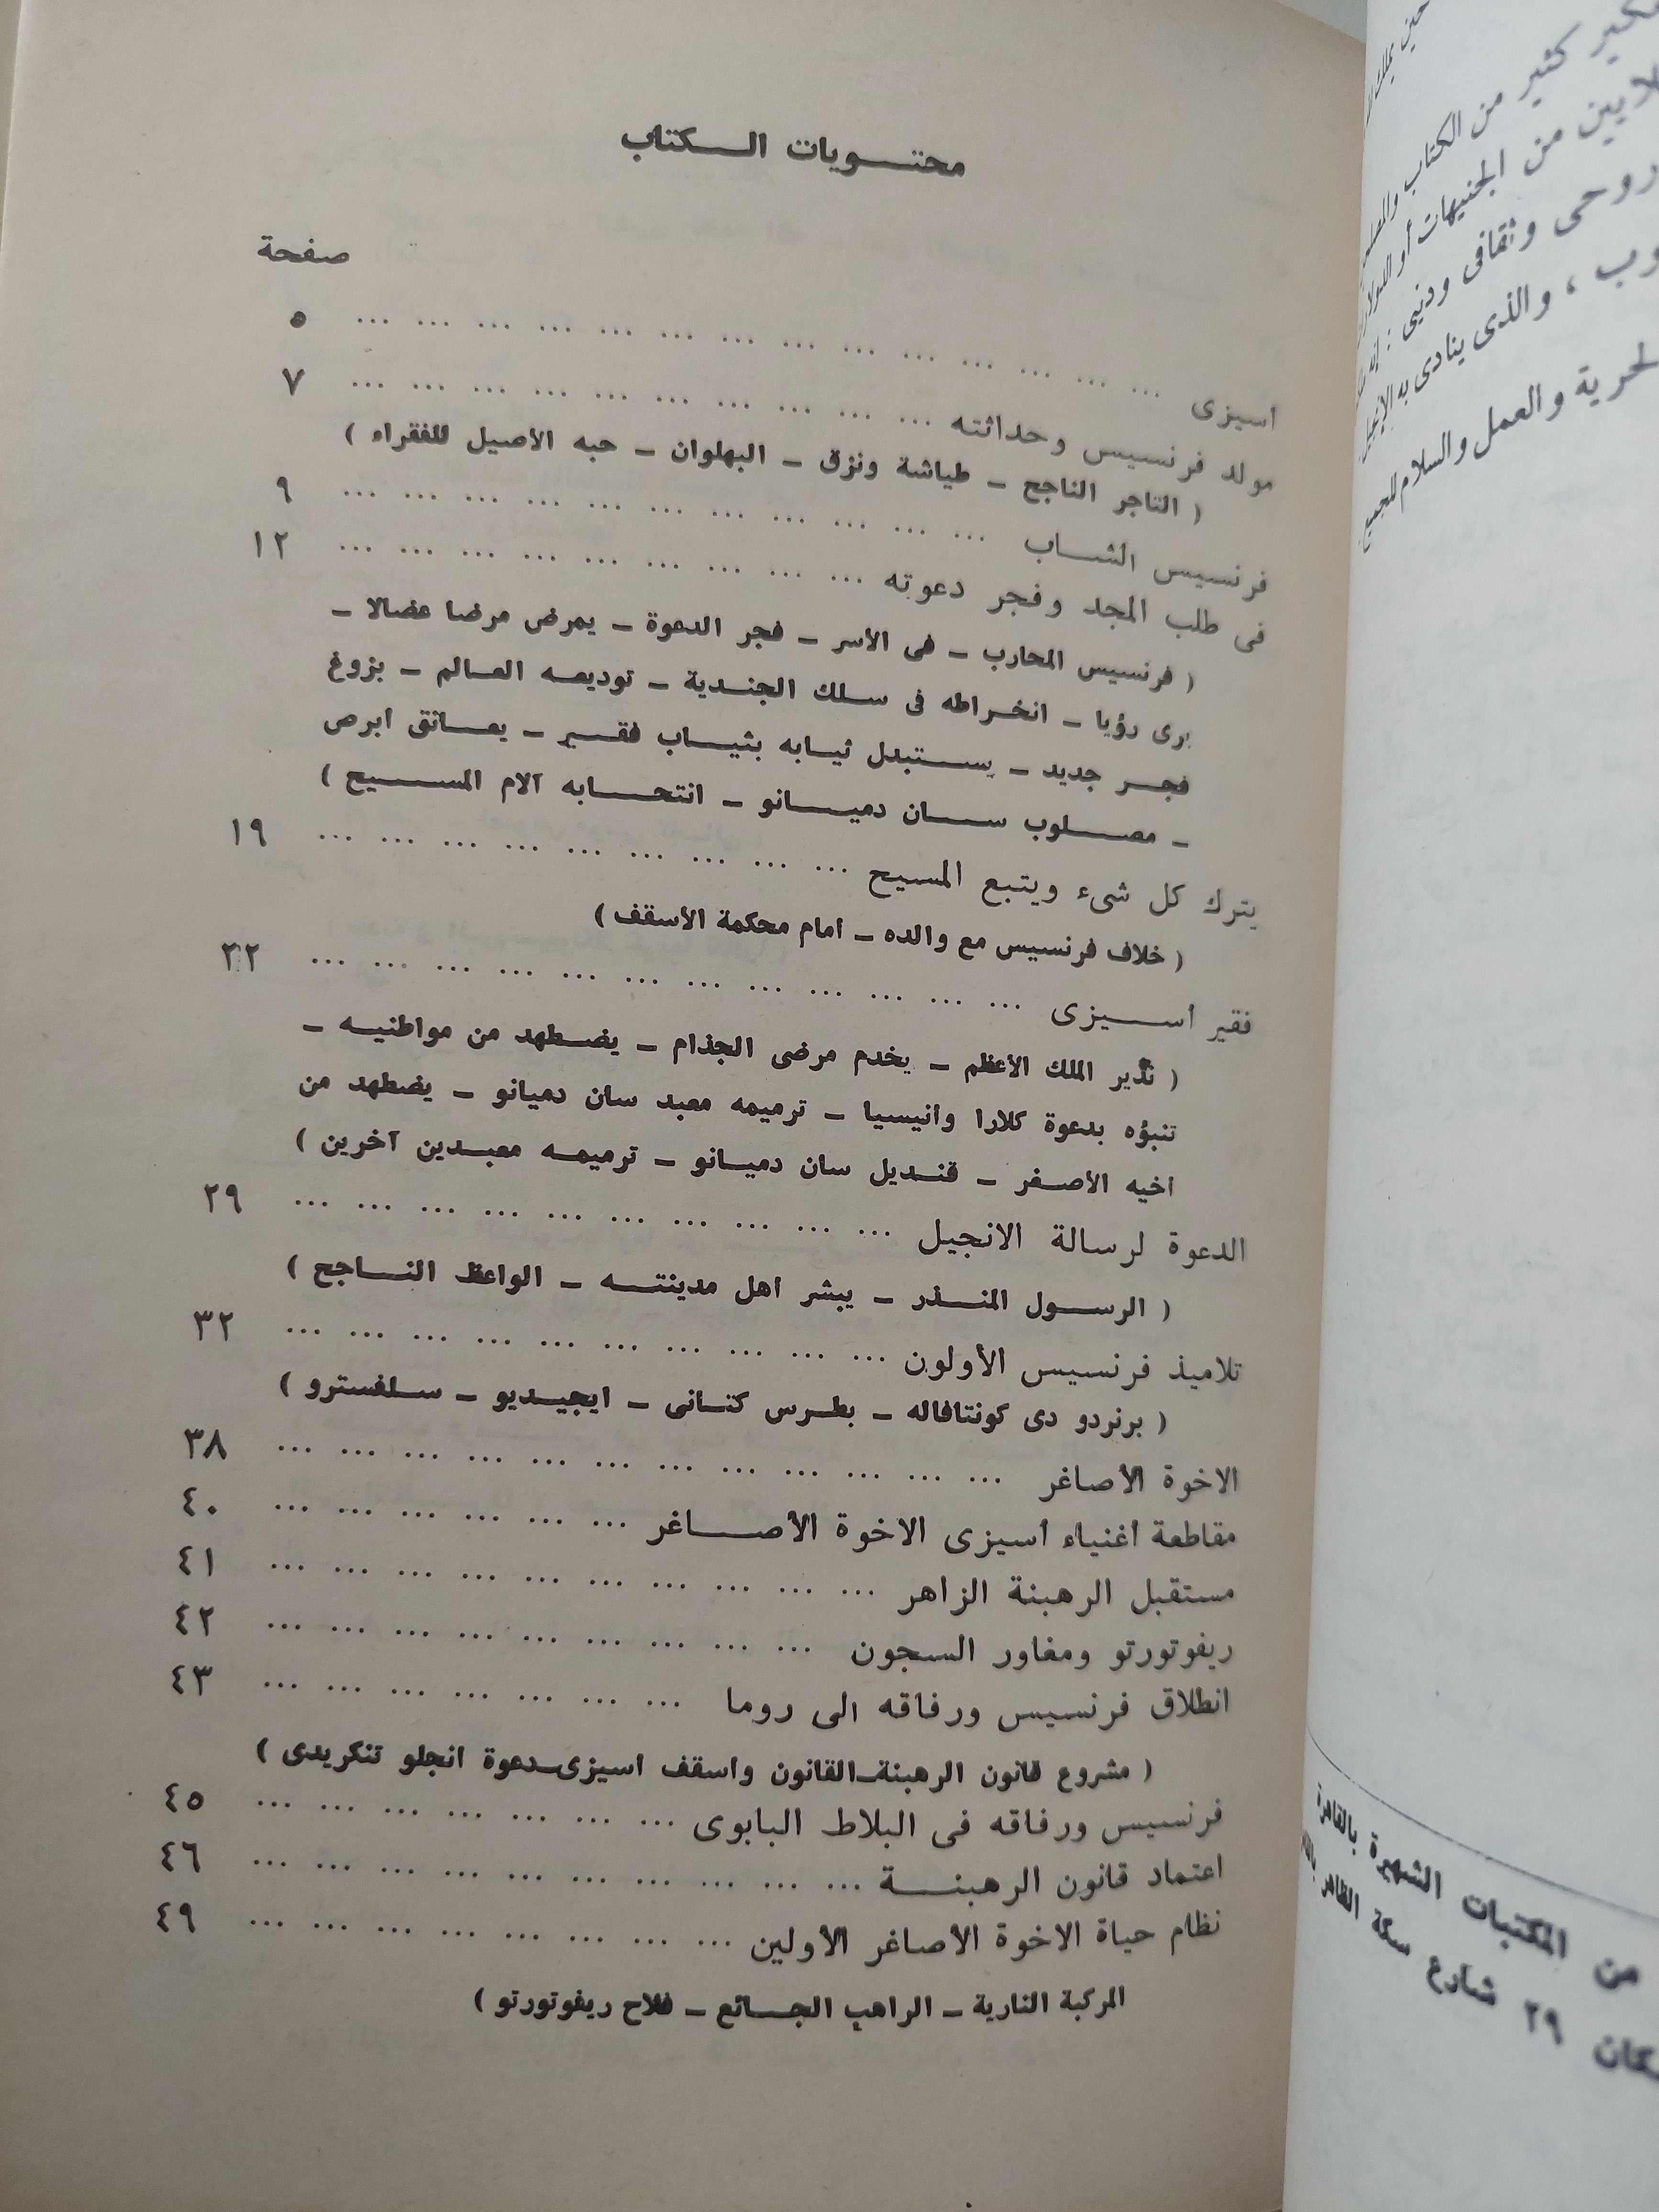 محتويات الكتاب
صفحة
أسيزى ... ... ... ... ... ... ... ... ... ... ... ... ... ... ٥
مولد فرنسيس وحداثته ... ... ... ... ... ... ... ... ... ... ٧
( التاجر الناجح – طياشة ونزق – البهلوان – حبه الأصيل للفقراء )
فرنسيس الشاب ... ... ... ... ... ... ... ... ... ... ... ٩
فى طلب المجد وفجر دعوته ... ... ... ... ... ... ... ... ... ١٢
( فرنسيس المحارب – فى الأسر – فجر الدعوة – يمرض مرضا عضالا –
يرى رؤيا – انخراطه فى سلك الجندية – توديعه العالم – بزوغ
فجر جديد – يستبدل ثيابه بثياب فقير – يعانق ابرص
– مصلوب سان دميانو – انتحابه آلام المسيح )
يترك كل شىء ويتبع المسيح ... ... ... ... ... ... ... ... ... ١٩
( خلاف فرنسيس مع والده – امام محكمة الأسقف )
فقير أسيزى ... ... ... ... ... ... ... ... ... ... ... ... ٢٢
( نذير الملك الأعظم – يخدم مرضى الجذام – يضطهد من مواطنيه –
تنبؤه بدعوة كلارا وانيسيا – ترميمه معبد سان دميانو – يضطهد من
اخيه الأصغر – قنديل سان دميانو – ترميمه معبدين آخرين )
الدعوة لرسالة الانجيل ... ... ... ... ... ... ... ... ... ... ٢٩
( الرسول المنذر – يبشر اهل مدينته – الواعظ الناجح )
تلاميذ فرنسيس الأولون ... ... ... ... ... ... ... ... ... ... ٣٢
( برنردو دى كونتافاله – بطرس كتانى – ايجيديو – سلفسترو )
الاخوة الأصاغر ... ... ... ... ... ... ... ... ... ... ... ... ٣٨
مقاطعة أغنياء أسيزى الاخوة الأصاغر ... ... ... ... ... ... ٤٠
مستقبل الرهبنة الزاهر ... ... ... ... ... ... ... ... ... ... ٤١
ريفوتورتو ومغاور السجون ... ... ... ... ... ... ... ... ... ٤٢
انطلاق فرنسيس ورفاقه الى روما ... ... ... ... ... ... ... ٤٣
( مشروع قانون الرهبنة–القانون واسقف اسيزى–دعوة انجلو تنكريدى )
فرنسيس ورفاقه فى البلاط البابوى ... ... ... ... ... ... ... ٤٥
اعتماد قانون الرهبنة ... ... ... ... ... ... ... ... ... ... ٤٦
نظام حياة الاخوة الأصاغر الأولين ... ... ... ... ... ... ... ... ٤٩
المركبة النارية – الراهب الجائع – فلاح ريفوتورتو )
كثير من الكتاب
من الجنيهات أو
روحى وثقافى ودينى :
، والذى ينادى به
والعمل والسلام للجميع
من المكتبات الشهيرة بالقاهرة
٢٩ شارع سكة الظاهر